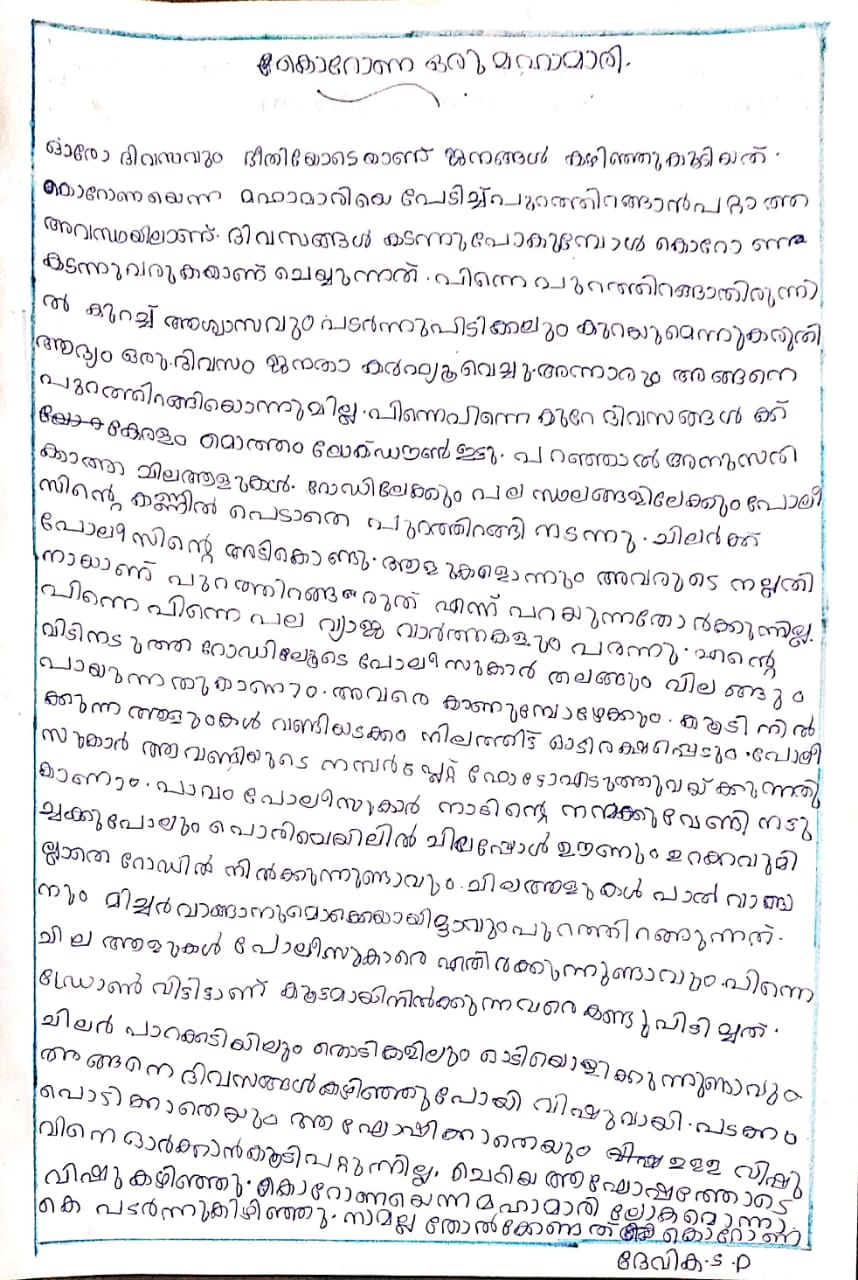 കൊറോണ ഒരു മഹാമാരി.
ഓരോ ദിവസവും ഭീതിയോടെയാണ് ജനങ്ങൾ കഴിഞ്ഞുകൂടിയത്.
കൊറോണയെന്ന മഹാമാരിയെ പേടിച്ച് പുറത്തിറങ്ങാൻ പറ്റാത്ത
അവസ്ഥയിലാണ്. ദിവസങ്ങൾ കടന്നുപോകുമ്പോൾ കൊറോണ
കടന്നുവരുകയാണ് ചെയ്യുന്നത്. പിന്നെ പുറത്തിറങ്ങാതിരുന്നി
ൽ കുറച്ച് ആശ്വാസവും പടർന്നുപിടിക്കലും കുറയുമെന്നുകരുതി
ആദ്യം ഒരു ദിവസം ജനതാ കർഫ്യൂ വെച്ചു. അന്നാരും അങ്ങനെ
പുറത്തിറങ്ങിയൊന്നുമില്ല. പിന്നെപിന്നെ കുറേ ദിവസങ്ങൾ ക്ക്
കേരളം മൊത്തം ലോക്ഡൗൺ ഇട്ടു. പറഞ്ഞാൽ അനുസരി
ക്കാത്ത ചിലആളുകൾ. റോഡിലേക്കും പല സ്ഥലങ്ങളിലേക്കും പോലീ
സിന്റെ കണ്ണിൽ പെടാതെ പുറത്തിറങ്ങി നടന്നു. ചിലർക്ക്
പോലീസിന്റെ അടികൊണ്ടു. ആളുകളൊന്നും അവരുടെ നല്ലതി
നായാണ് പുറത്തിറങ്ങരുത് എന്ന് പറയുന്നതോർക്കുന്നില്ല.
പിന്നെ പിന്നെ പല വ്യാജ വാർത്തകളും പരന്നു. എന്റെ
വീടിനടുത്ത റോഡിലൂടെ പോലീസുകാർ തലങ്ങും വിലങ്ങും
പായുന്നതുകാണാം. അവരെ കാണുമ്പോഴേക്കും. കൂടി നിൽ
ക്കുന്ന ആളുംകൾ വണ്ടിയടക്കം നിലത്തിട്ട് ഓടിരക്ഷപ്പെടും. പോലീ
സുകാർ ആ വണ്ടിയുടെ നമ്പർ പ്ലേറ്റ് ഫോട്ടോഎടുത്തുവയ്ക്കുന്നതു
കാണാം. പാവം പോലീസുകാർ നാടിന്റെ നന്മക്കുവേണ്ടി നട്ടു
ച്ചക്കുപോലും പൊരിവെയിലിൽ ചിലപ്പോൾ ഊണും ഉറക്കവുമി
ല്ലാതെ റോഡിൽ നിൽക്കുന്നുണ്ടാവും. ചിലആളുകൾ പാൽ വാങ്ങാ
നും മിച്ചർ വാങ്ങാനുമൊക്കെയായിട്ടാവും പുറത്തിറങ്ങുന്നത്.
ചില ആളുകൾ പോലീസുകാരെ എതിർക്കുന്നുണ്ടാവും. പിന്നെ
ഡ്രോൺ വിട്ടിട്ടാണ് കൂട്ടമായിനിൽക്കുന്നവരെ കണ്ടുപിടിച്ചത്.
ചിലർ പാറക്കടിയിലും തൊടികളിലും ഓടിയൊളിക്കുന്നുണ്ടാവും
അങ്ങനെ ദിവസങ്ങൾകഴിഞ്ഞുപോയി വിഷുവായി. പടക്കം
പൊട്ടിക്കാതെയും ആഘോഷിക്കാതെയും ഉള്ള വിഷു
വിനെ ഓർക്കാൻകൂടിപറ്റുന്നില്ല. ചെറിയ ആഘോഷത്തോടെ
വിഷു കഴിഞ്ഞു. കൊറോണയെന്ന മഹാമാരി ലോകമൊന്നാ
കെ പടർന്നുകിഴിഞ്ഞു. നാമല്ല തോൽക്കേണ്ടത് കൊറോണ
ദേവിക. ട. P